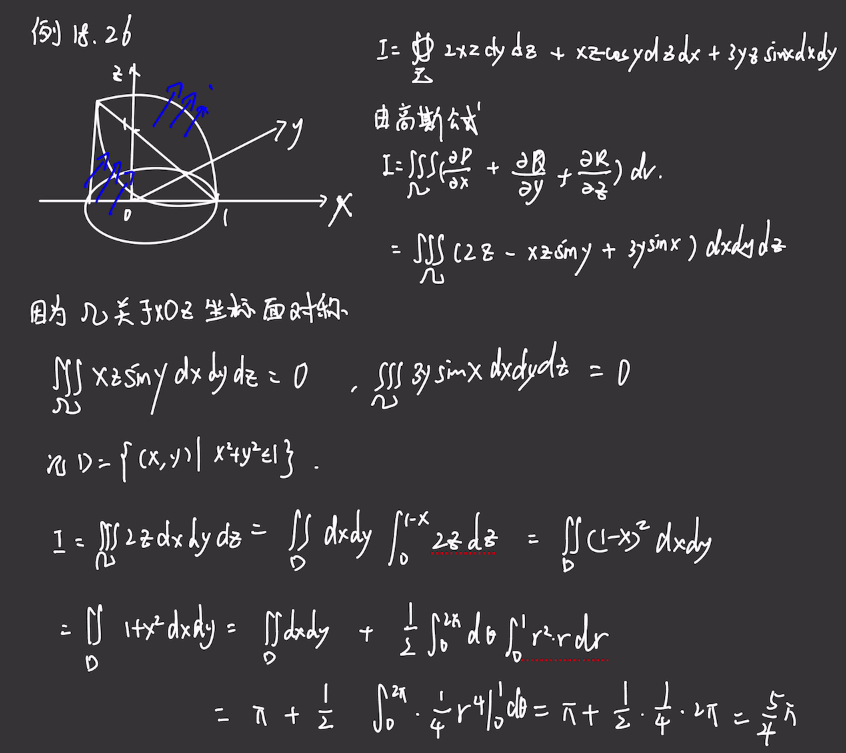 例 18.26
z
1
y
0
1
x
I = ∯_Σ 2xz dy dz + xz cos y dz dx + 3yz sin x dx dy
由高斯公式
I = ∭_Ω (∂P/∂x + ∂Q/∂y + ∂R/∂z) dv.
= ∭_Ω (2z - xz sin y + 3y sin x) dx dy dz
因为 Ω 关于 xOz 坐标面对称
∭_Ω xz sin y dx dy dz = 0 , ∭_Ω 3y sin x dx dy dz = 0
记 D = {(x, y) | x²+y² ≤ 1} .
I = ∭_Ω 2z dx dy dz = ∬_D dx dy ∫_0^{1-x} 2z dz = ∬_D (1-x)² dx dy
= ∬_D 1+x² dx dy = ∬_D dx dy + 1/2 ∫_0^{2π} dθ ∫_0^1 r²·r dr
= π + 1/2 ∫_0^{2π} · 1/4 r⁴|_0^1 dθ = π + 1/2 · 1/4 · 2π = 5/4 π